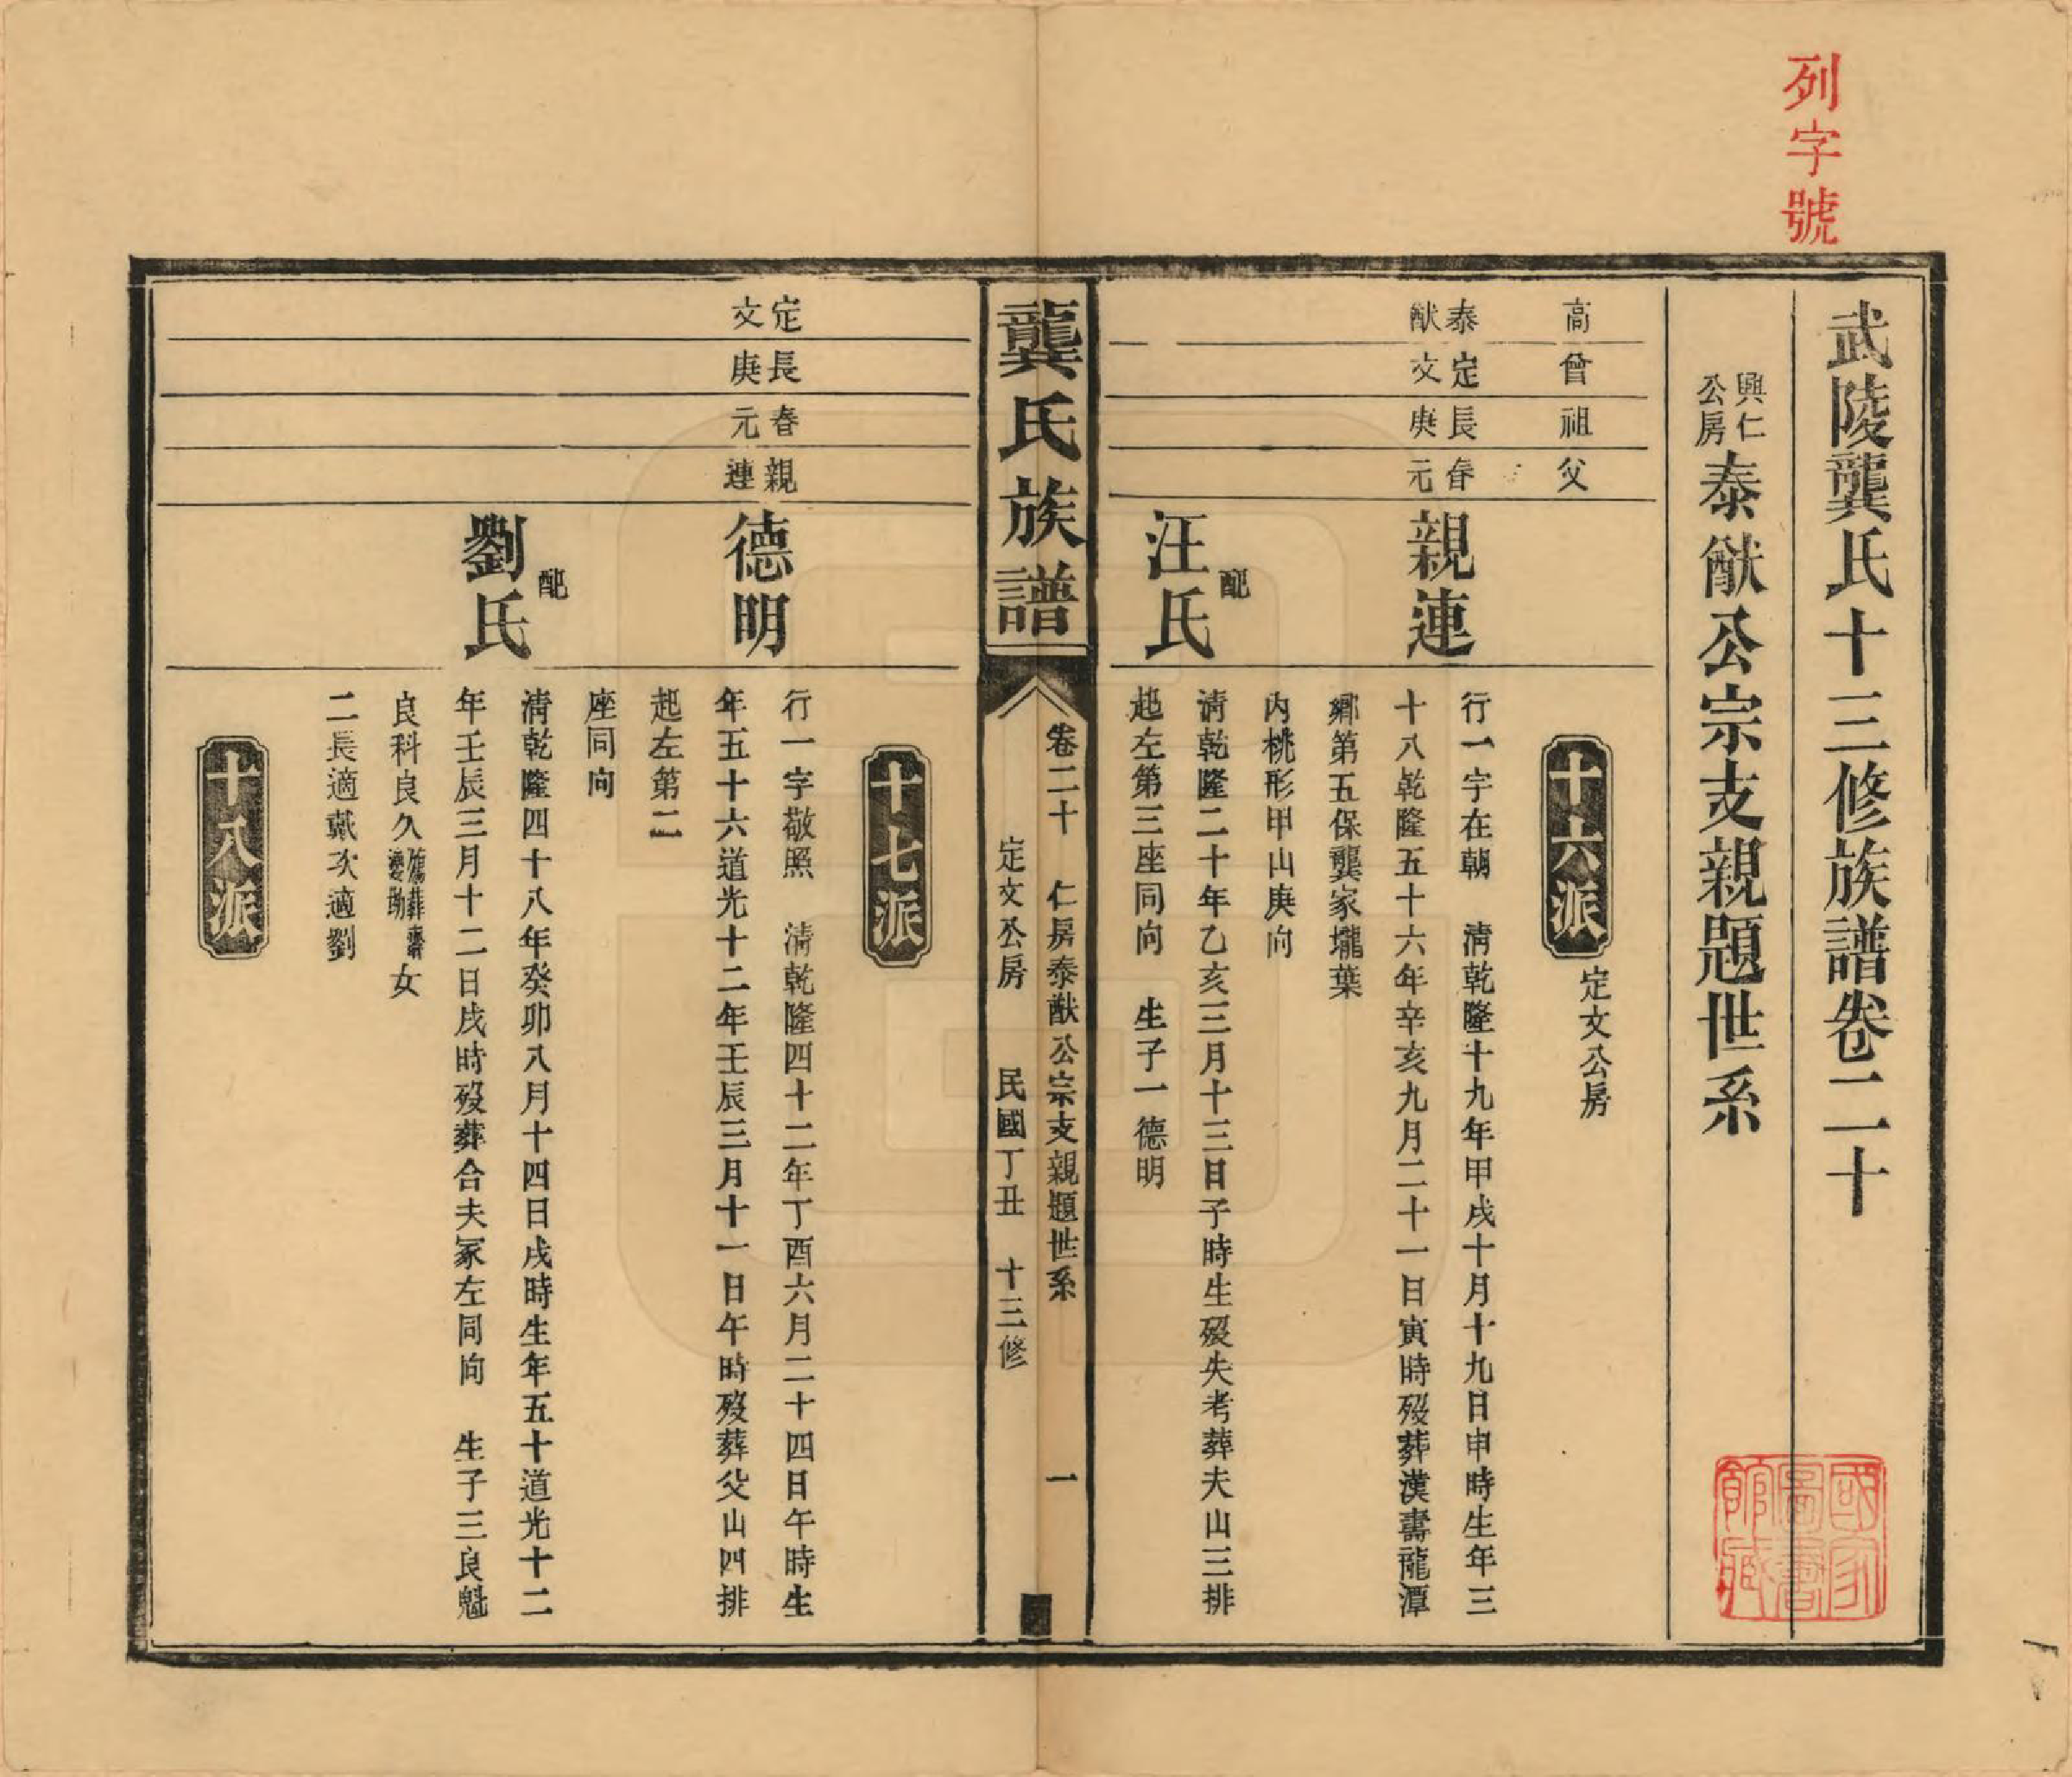 列字號
武陵龔氏十三修族譜卷二十
興仁公房泰猷公宗支親題世系
國家圖書館藏
高曾祖父
十六派
定文公房
泰猷
定文
長庚
春元
親連
行一字在朝 淸乾隆十九年甲戌十月十九日申時生年三
十八乾隆五十六年辛亥九月二十一日寅時歿葬漢壽龍潭
鄉第五保龔家壠葉
內桃形甲山庚向
配汪氏
淸乾隆二十年乙亥三月十三日子時生歿失考葬夫山三排
起左第三座同向 生子一德明
龔氏族譜
卷二十 仁房泰猷公宗支親題世系 一
定文公房 民國丁丑 十三修
十七派
定文
長庚
春元
親連
德明
行一字敬照 淸乾隆四十二年丁酉六月二十四日午時生
年五十六道光十二年壬辰三月十一日午時歿葬父山四排
起左第二
座同向
配劉氏
淸乾隆四十八年癸卯八月十四日戌時生年五十道光十二
年壬辰三月十二日戌時歿葬合夫冢左同向 生子三良魁
良科良久女
二長適戴次適劉
十八派